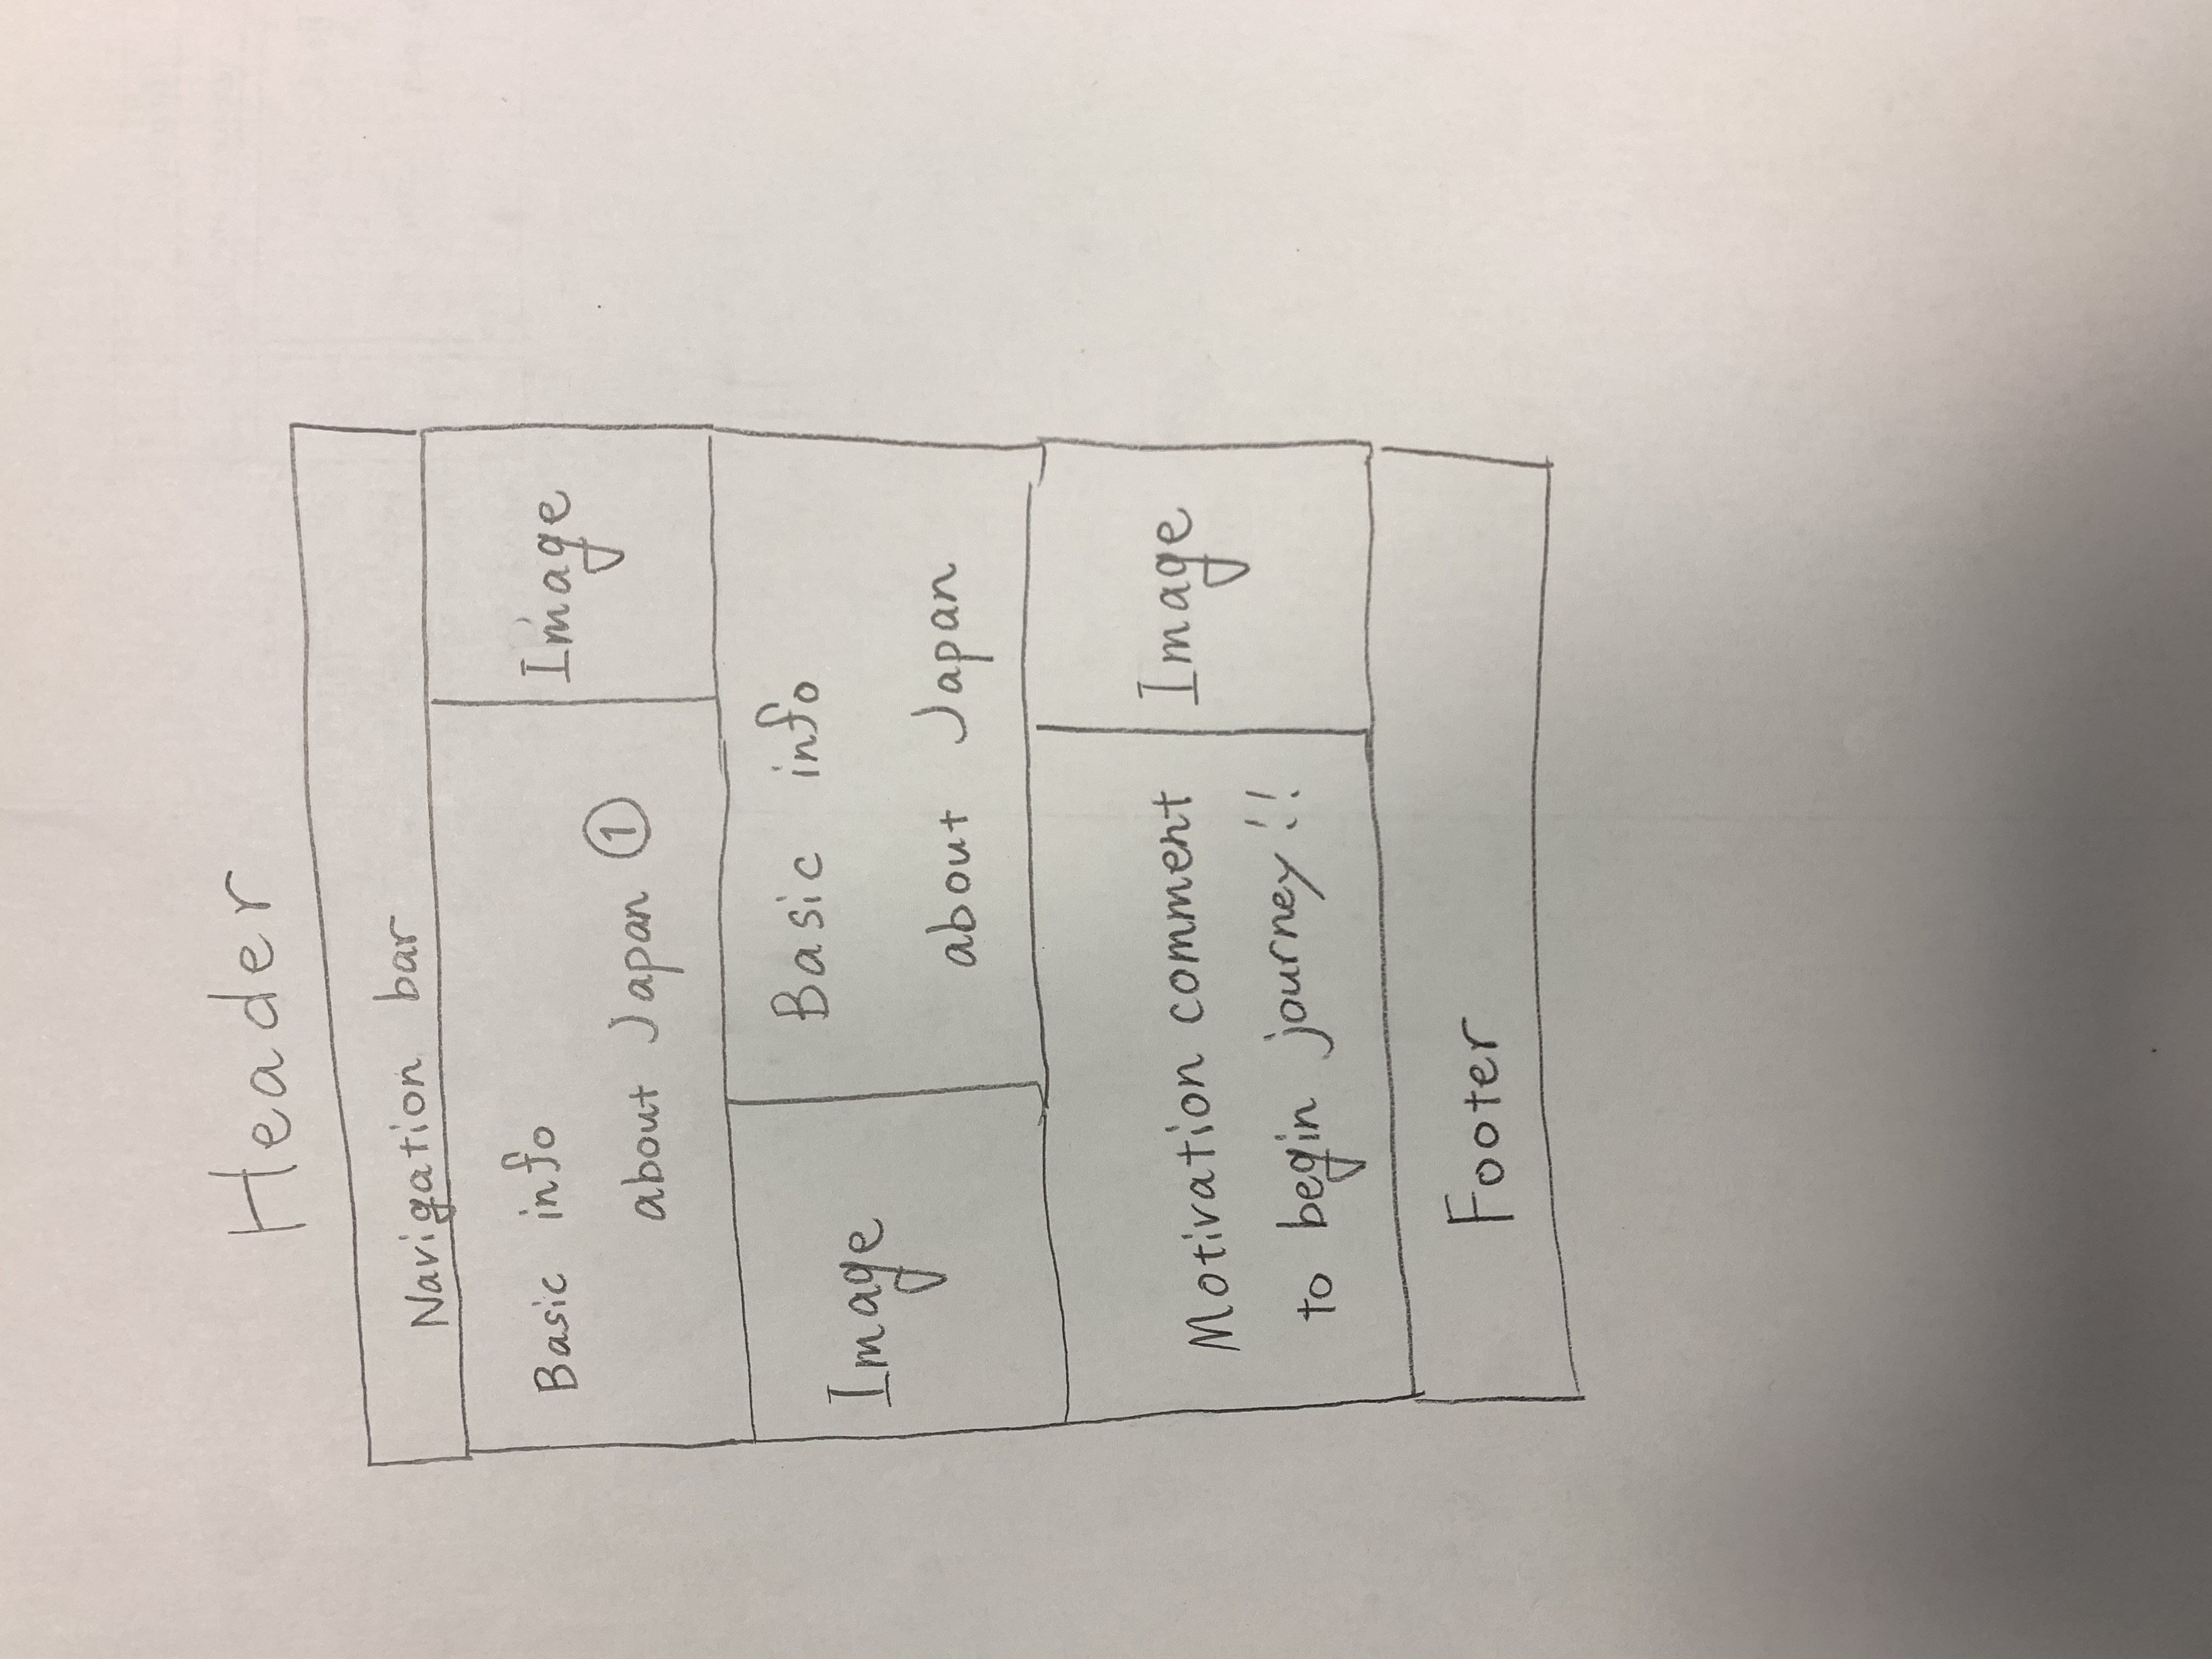 Header
Navigation bar
Basic info
about Japan ①
Image
Image
Basic info
about Japan
Motivation comment
to begin journey!!
Image
Footer